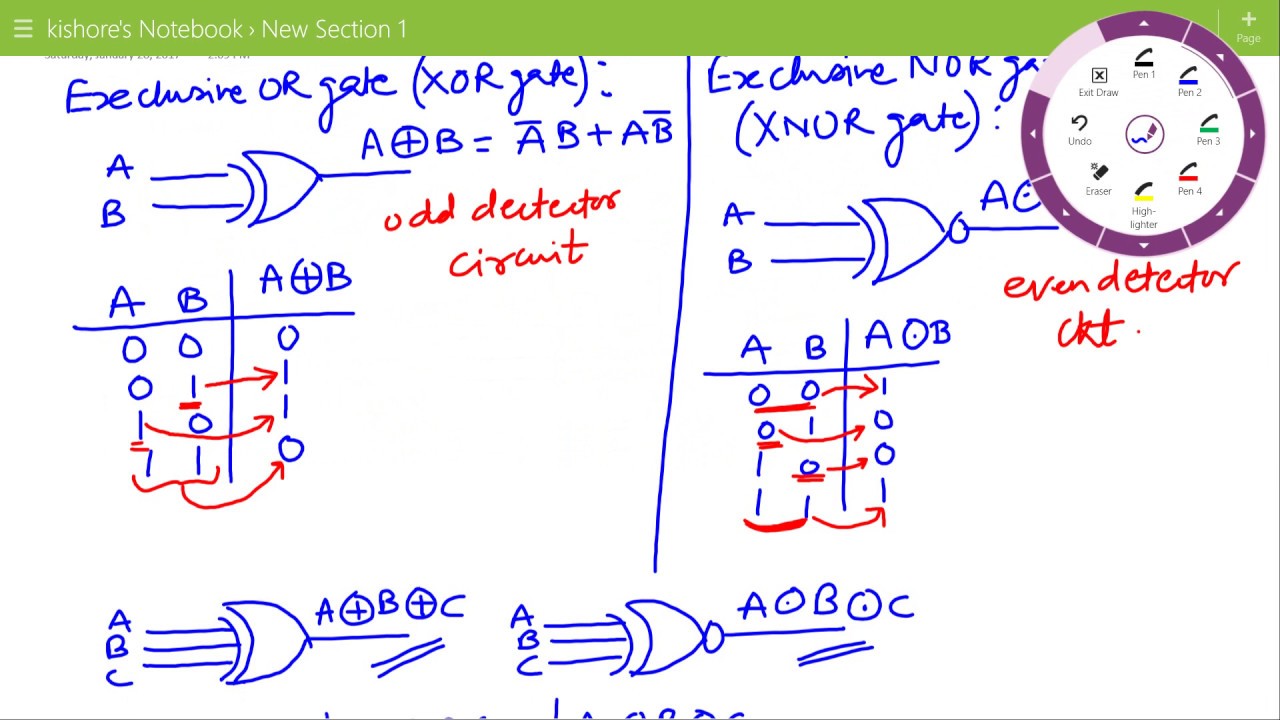 kishore's Notebook › New Section 1
Page
Execlusive OR gate (XOR gate):
A⊕B = A̅B + AB̅
A
B
odd dectector
circuit
A B A⊕B
0 0 0
0 1 1
1 0 1
1 1 0
Execlusive NOR
(XNOR gate):
A
B
A⊙
even detector
ckt.
A B A⊙B
0 0 1
0 1 0
1 0 0
1 1 1
Pen 1
Exit Draw
Pen 2
Undo
Pen 3
Eraser
Pen 4
High-
lighter
A
B
C
A⊕B⊕C
A
B
C
A⊙B⊙C